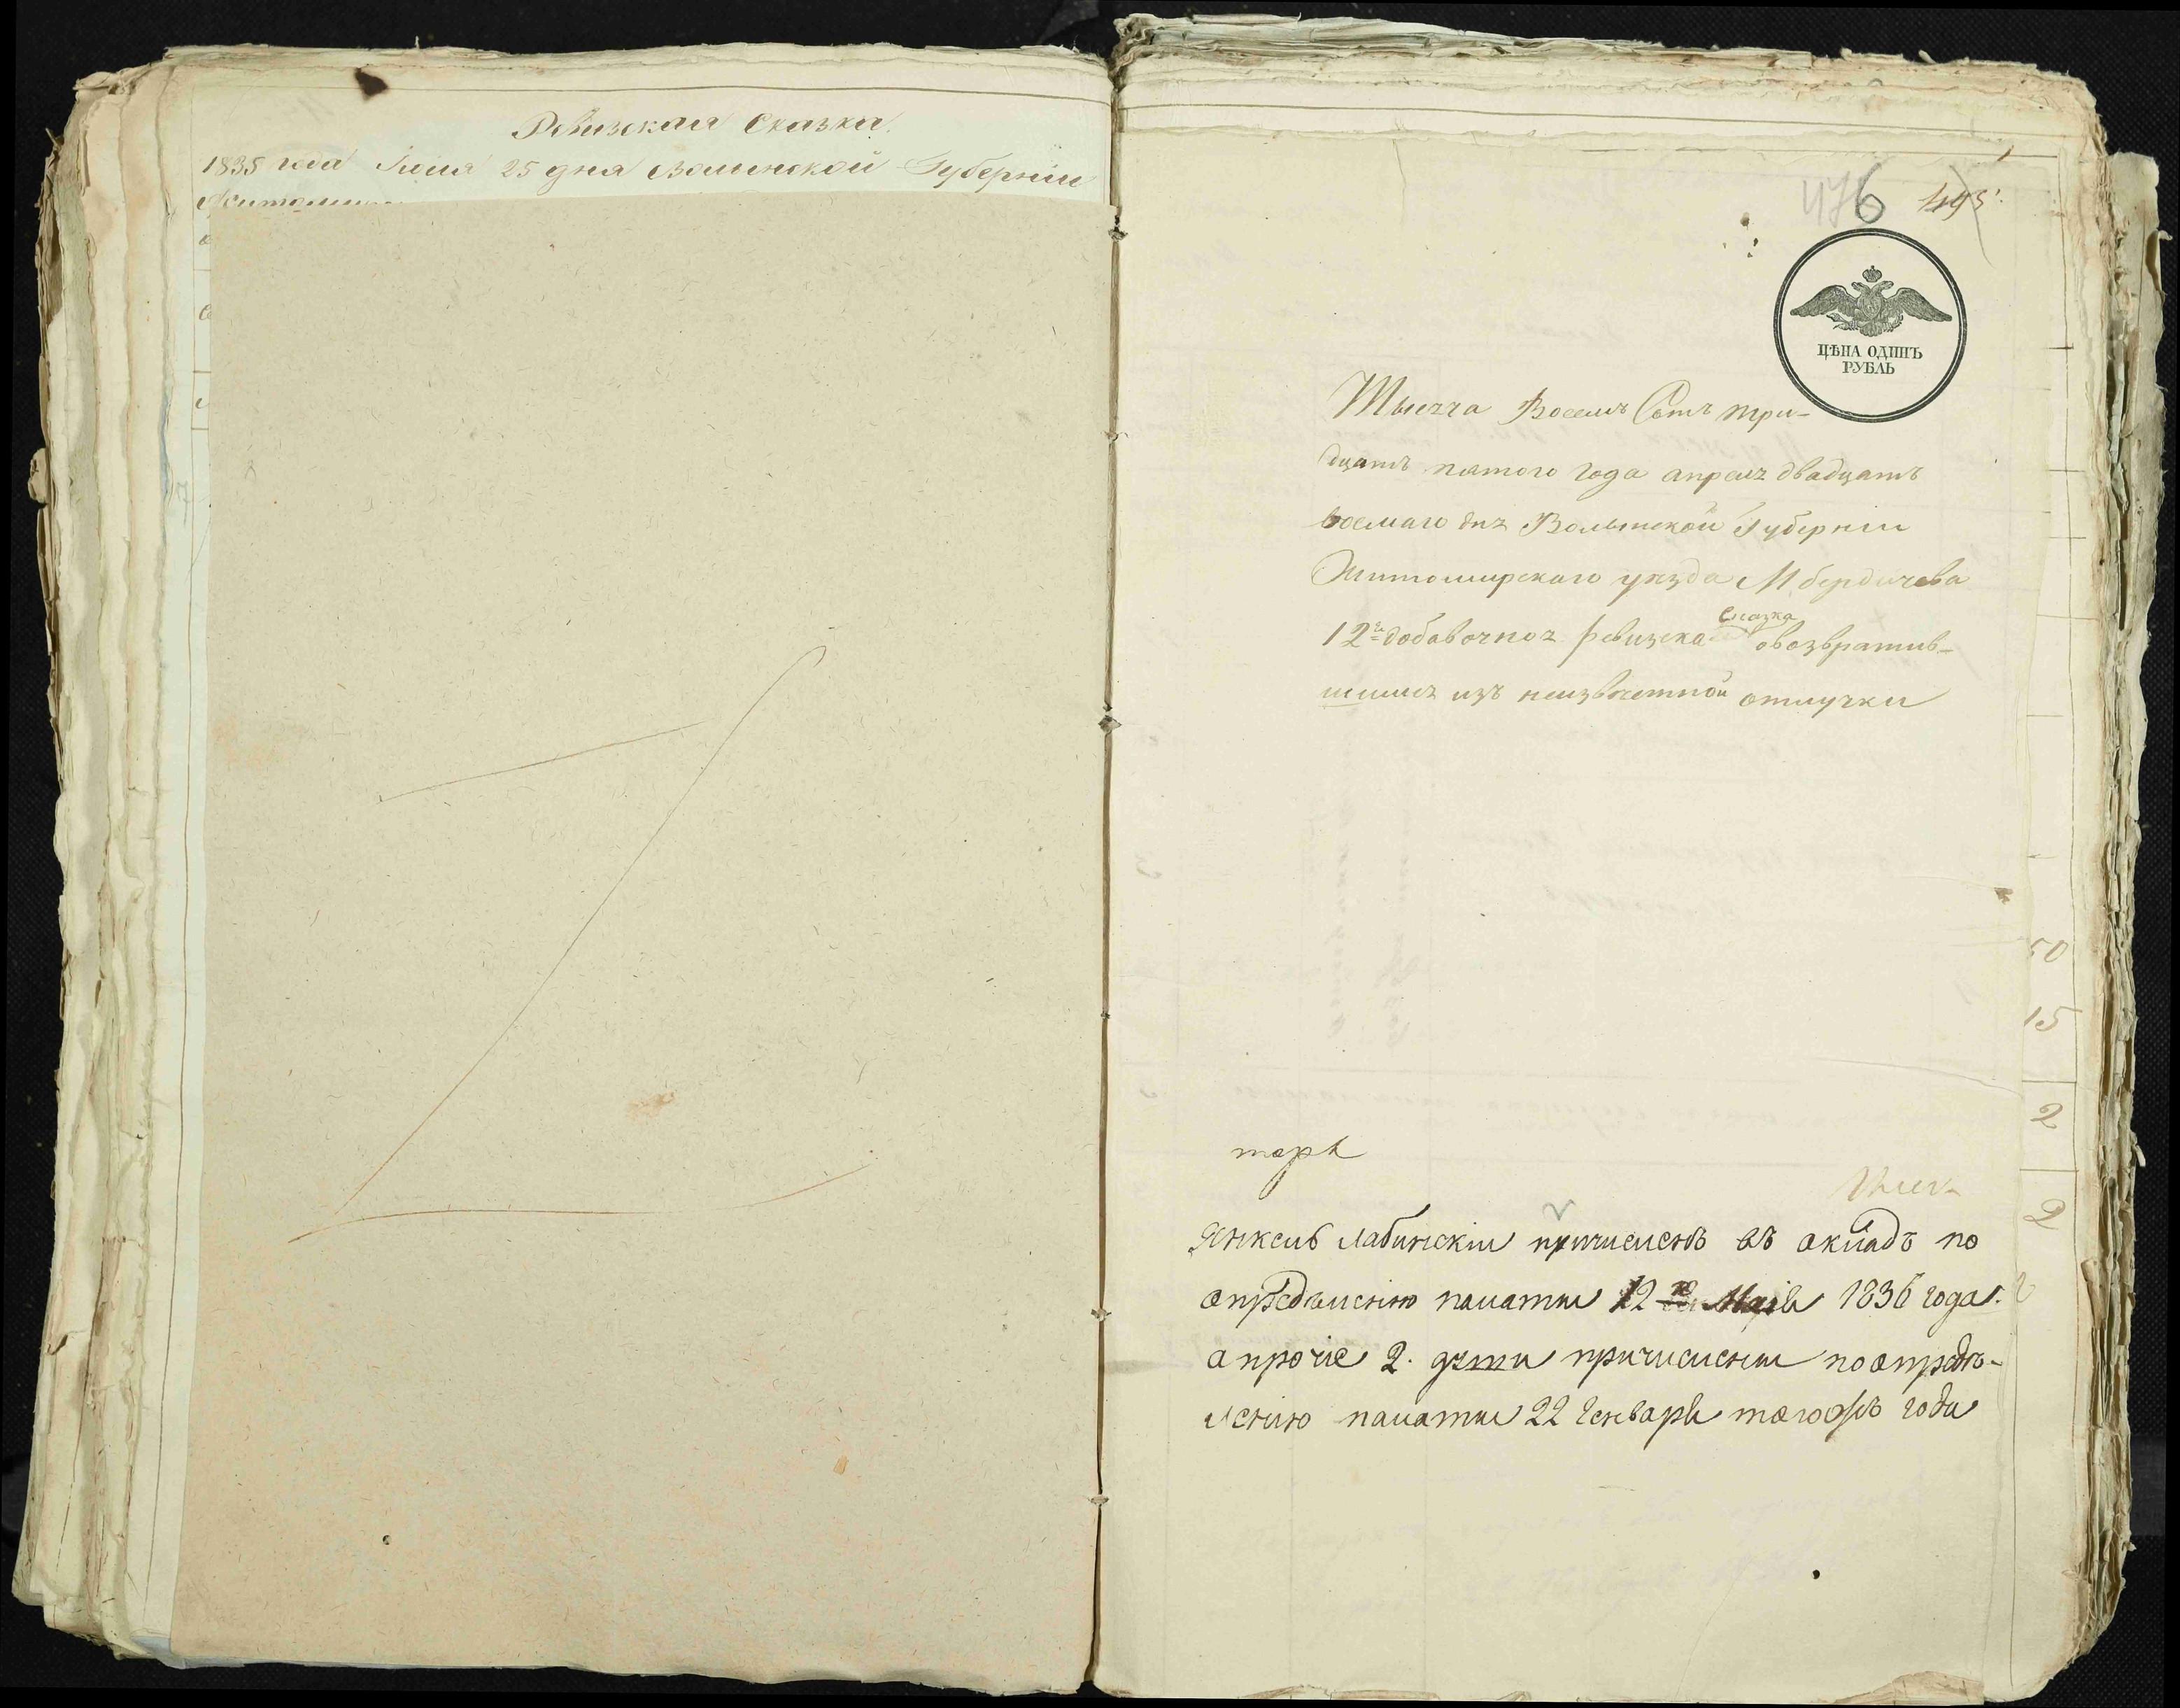 Ревизская Сказка.
1835 года Июля 25 дня Волынской Губерніи
476 495
ЦѢНА ОДИНЪ
РУБЛЬ
Тысяча Восемъ Сотъ три-
дцать пятого года апреля двадцать
восмаго дня Волынской Губерніи
Житомирскаго уѣзда М. бердичева
Сказка
12я добавочноя ревизская овозвратив-
шимся изъ неизвѣстной отлучки
50
15
2
2
Янкель Лабинскій причисленъ въ окладъ по
опредѣленію палаты 12 Маія 1836 года.
а прочіе 2. дѣти причислены по опредѣ-
ленію палаты 22 Генваря тогожъ года